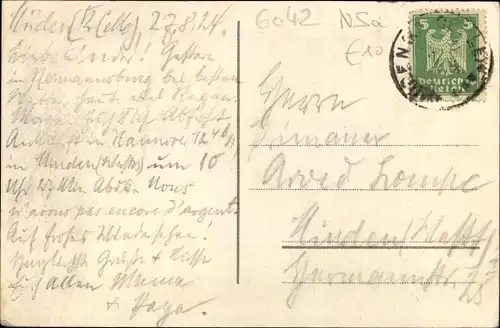 Müden (Kr. Celle) 27.8.24.
Liebe Kinder! Gestern
in Hermannsburg bei bestem
Wetter, heute viel Regen.
Morgen früh Abfahrt
Ankunft in Hannover 12 40
in Minden (Westf) um 10
Uhr 27 Min Abds. Nous
n'avons pas encore d'argent.
Auf frohes Wiedersehen!
Herzlichste Grüße & Küsse
Euch allen Mama
& Papa.
6042 NSa
£10
5 5
Deutsches
Reich
Herrn
Primaner
Arved Lompe
Minden (Westf)
Hermannstr